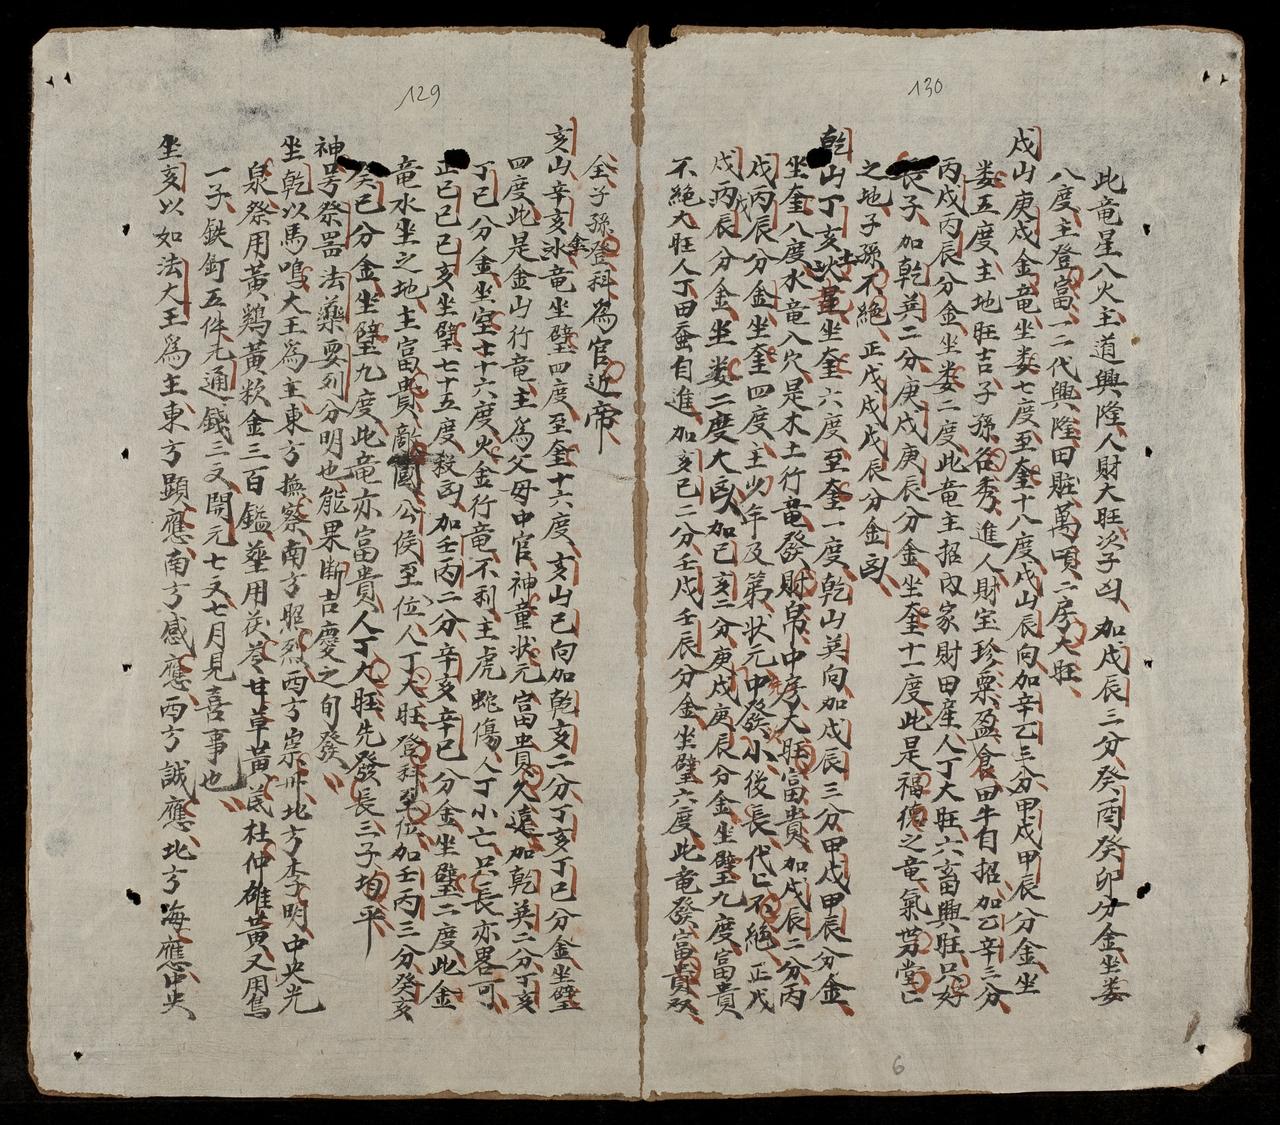 130
此竜星八火主道興隆人財大旺次子凶加戊辰三分癸酉癸卯分金坐娄
八度主登富一二代興隆田賍萬頃二房大旺
戌山庚戌金竜坐娄七度至奎十八度戌山辰向加辛乙三分甲戌甲辰分金坐
娄五度主地旺吉子孫谷秀進人財宝珍粟盈倉田牛自招加乙辛三分
丙戌丙辰分金坐娄二度此竜主招內家財田産人丁大旺六畜興旺只好
長子加乾巽二分庚戌庚辰分金坐奎十一度此是福德之竜氣势堂亡
之地子孫不絕正戊戌戊辰分金凶
乾山丁亥土竜坐奎六度至奎一度乾山巽向加戌辰三分甲戌甲辰分金
坐奎八度水竜入穴是木土行竜發財帛中房大旺富貴加戌辰二分丙
戌丙辰分金坐奎四度主少年及第状元中發小後長代亡不絕正戊
戌丙辰分金坐娄二度大凶加巳亥二分庚戌庚辰分金坐壁九度富貴
不絕大旺人丁田蚕自進加亥巳二分壬戌壬辰分金坐壁六度此竜發富貴双
129
全子孫登科為官近帝
亥山辛亥金竜坐壁四度至奎十六度亥山巳向加乾亥二分丁亥丁巳分金坐壁
四度此是金山行竜主為父母中官神童状元富貴久遠加乾巽二分丁亥
丁巳分金坐室七十六度火金行竜不利主虎蛇傷人丁小亡只長亦畧可
正巳巳己亥坐壁七十五度殺凶加壬丙二分辛亥辛巳分金坐壁二度此金
竜水坐之地主富貴敵國公侯至位人丁大旺登科至位加壬丙三分癸亥
癸巳分金坐壁九度此竜亦富貴人丁大旺先發長三子均平
神号祭罡法藥要列分明也能果断吉慶之旬發
坐乾以馬鳴大王為主東方撫察南方照烈西方崇卅北方李明中央光
泉祭用黃鷄黃欵金三百鎰藥用茯苓甘草黃芪杜仲雄黃又用馬
一子鉄釘五件元通錢三文開元七文七月見喜事也
坐亥以如法大王為主東方顕應南方感應西方誠應北方海應中央
6